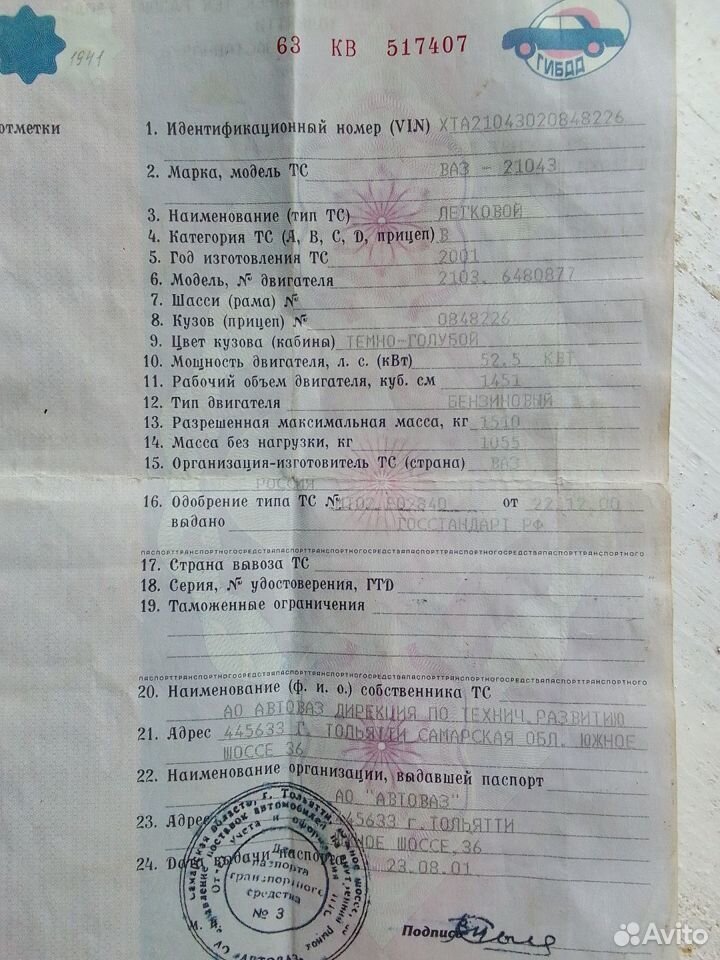 63 КВ 517407
ГИБДД
1941
отметки
1. Идентификационный номер (VIN) XTA21043020848226
2. Марка, модель ТС ВАЗ - 21043
3. Наименование (тип ТС) ЛЕГКОВОЙ
4. Категория ТС (А, В, С, D, прицеп) В
5. Год изготовления ТС 2001
6. Модель, № двигателя 2103, 6480877
7. Шасси (рама) №
8. Кузов (прицеп) № 0848226
9. Цвет кузова (кабины) ТЕМНО-ГОЛУБОЙ
10. Мощность двигателя, л. с. (кВт) 52.5 КВТ
11. Рабочий объем двигателя, куб. см 1451
12. Тип двигателя БЕНЗИНОВЫЙ
13. Разрешенная максимальная масса, кг 1510
14. Масса без нагрузки, кг 1055
15. Организация-изготовитель ТС (страна) ВАЗ
РОССИЯ
16. Одобрение типа ТС № от 22.12.00
выдано ГОССТАНДАРТ РФ
17. Страна вывоза ТС
18. Серия, № удостоверения, ГТD
19. Таможенные ограничения
20. Наименование (ф. и. о.) собственника ТС
АО АВТОВАЗ ДИРЕКЦИЯ ПО ТЕХНИЧ.РАЗВИТИЮ
21. Адрес 445633 Г. ТОЛЬЯТТИ САМАРСКАЯ ОБЛ. ЮЖНОЕ
ШОССЕ 36
22. Наименование организации, выдавшей паспорт
АО "АВТОВАЗ"
23. Адрес 445633 Г.ТОЛЬЯТТИ
ЮЖНОЕ ШОССЕ,36
24. Дата выдачи паспорта 23.08.01
Для
паспорта
транспортного
средства
№ 3
Подпись
Avito